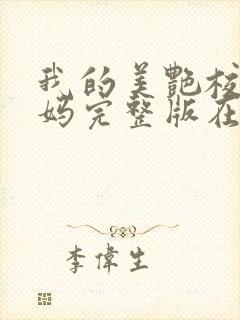 我的美艷校
妈完整版在
李偉生